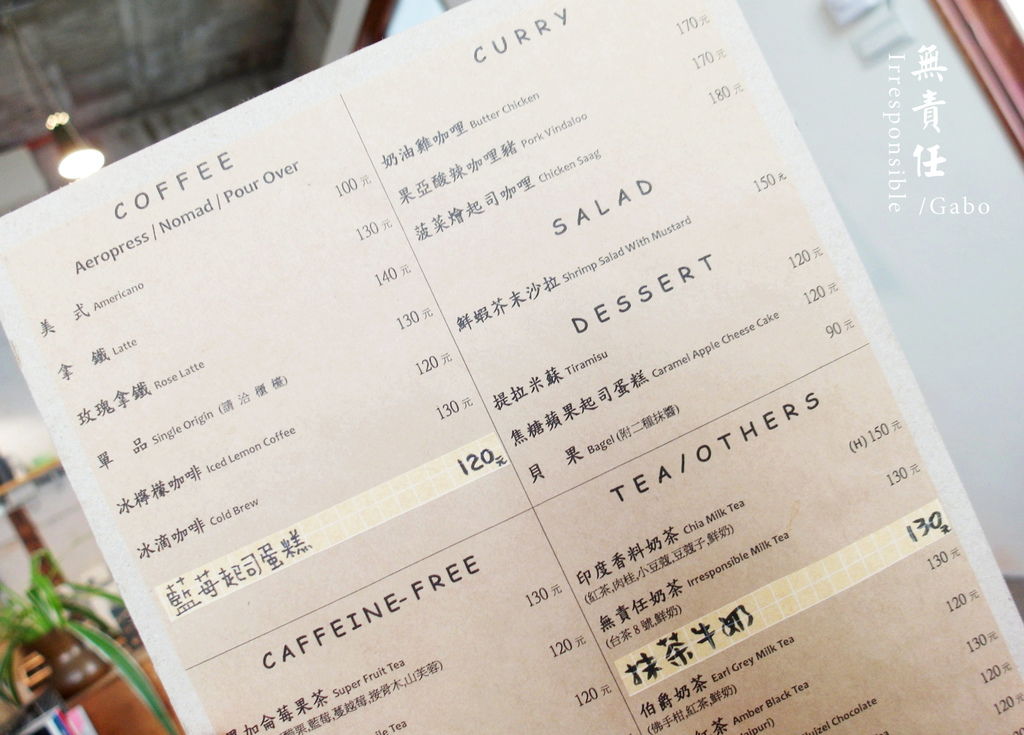 無責任
Irresponsible
/Gabo
COFFEE
Aeropress / Nomad / Pour Over
美 式 Americano 100元
拿 鐵 Latte 130元
玫瑰拿鐵 Rose Latte 140元
單 品 Single Origin (請洽櫃檯) 130元
冰檸檬咖啡 Iced Lemon Coffee 120元
冰滴咖啡 Cold Brew 130元
藍莓起司蛋糕 120元
CAFFEINE-FREE
加侖莓果茶 Super Fruit Tea 130元
藍莓,蔓越莓,接骨木,山芙蓉)
Tea 120元
120元
CURRY
奶油雞咖哩 Butter Chicken 170元
果亞酸辣咖哩豬 Pork Vindaloo 170元
菠菜燴起司咖哩 Chicken Saag 180元
SALAD
鮮蝦芥末沙拉 Shrimp Salad With Mustard 150元
DESSERT
提拉米蘇 Tiramisu 120元
焦糖蘋果起司蛋糕 Caramel Apple Cheese Cake 120元
貝 果 Bagel (附二種抹醬) 90元
TEA/OTHERS
印度香料奶茶 Chia Milk Tea (H) 150元
(紅茶,肉桂,小豆蔻,豆蔻子,鮮奶)
無責任奶茶 Irresponsible Milk Tea 130元
(台茶8號,鮮奶)
抹茶牛奶 130元
伯爵奶茶 Earl Grey Milk Tea 130元
(佛手柑,紅茶,鮮奶)
紅茶 Amber Black Tea 120元
Chocolate 130元
120元
120